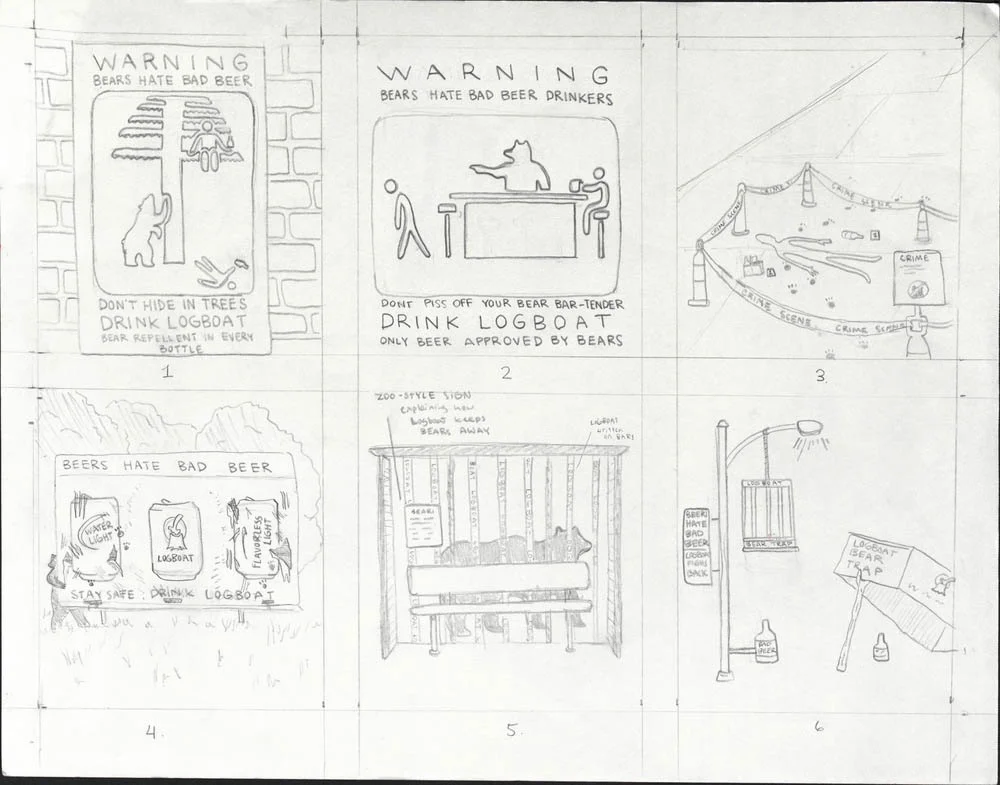 WARNING
BEARS HATE BAD BEER
DON'T HIDE IN TREES
DRINK LOGBOAT
BEAR REPELLENT IN EVERY
BOTTLE
1
WARNING
BEARS HATE BAD BEER DRINKERS
DONT PISS OFF YOUR BEAR BAR-TENDER
DRINK LOGBOAT
ONLY BEER APPROVED BY BEARS
2
CRIME SCENE
CRIME
CRIME SCENE
CRIME
CRIME SCENE
CRIME SCENE
3.
BEERS HATE BAD BEER
WATER
LIGHT
LOGBOAT
FLAVORLESS
LIGHT
STAY SAFE: DRINK LOGBOAT
4.
ZOO-STYLE SIGN
explaining how
Logboat KEEPS
BEARS AWAY
LOGBOAT
written
on BARS
BEAR
5.
LOGBOAT
BEAR TRAP
HATE
BAD
BEER
LOGBOAT
FIGHTS
BACK
BAD
BEER
LOGBOAT
BEAR
TRAP
6